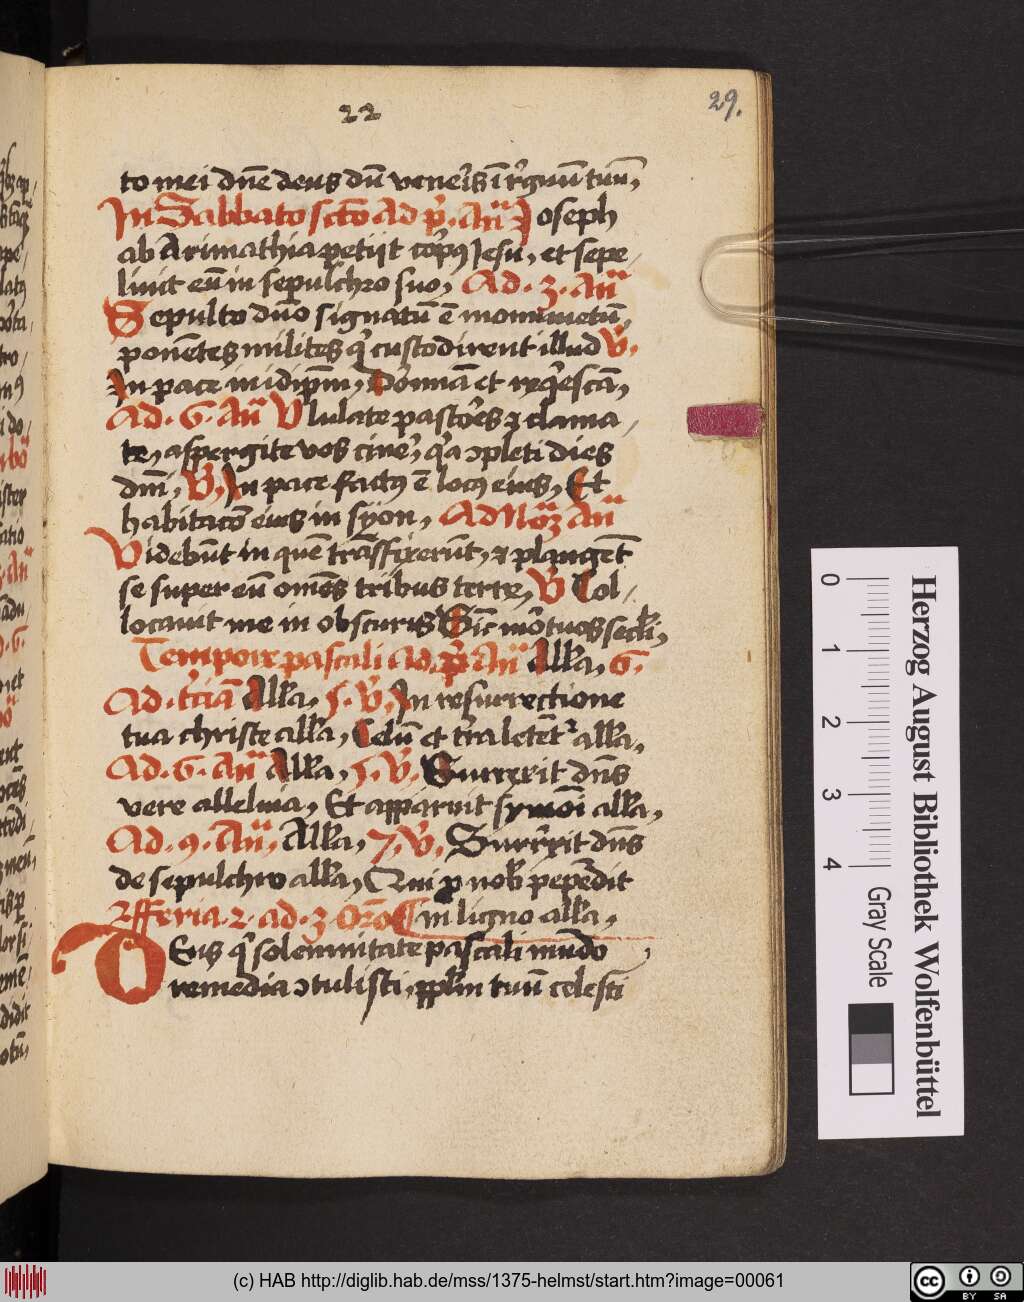 22
29.
to mei dn̄e deus dū veneris ī regnū tuū,
In Sabbato sc̄to Ad p̄. An̄ Joseph
ab Arimathia petijt corpꝯ Jesu, et sepe-
liuit eū in sepulchro suo, Ad. 3. an̄
Sepulto dn̄o signatū ē monumētū,
ponētes milites q̇ custodirent illud V̄.
In pace in idip̄m, Dormiā et reqescā,
Ad. 6. An̄ Vlulate pastores ⁊ clama-
te, aspergite vos cinē, qa ɔpleti dies
dn̄i, V̄. In pace factꝯ ē locꝯ eius, Et
habitaco eius in syon, Ad Noꝝ an̄
Videbūt in quē trāsfixerūt, ⁊ plangēt
se super eū omēs tribus terre, V̄ Col-
locauit me in obscuris Sic̄ mortuos secli,
Tempore pascali Ad. p̄ An̄ All'a, 6.
Ad. t'ciā All'a, 5. V̄. In resurrectione
tua christe all'a, Celū et t'ra letēt^r all'a,
Ad. 6. An̄ All'a, 5. V̄. Surrexit dn̄s
vere alleluia, Et apparuit symoi all'a,
Ad. 9. An̄, All'a, 7. V̄. Surrexit dn̄s
de sepulchro all'a, Qui p nob' pepēdit
in ligno all'a,
2^ff feria. 2. ad. 3 Oro
Deus q' solemnitate pascali mūdo
remedia ɔtulisti, pp̄lm tuū celesti
0 1 2 3 4
Gray Scale
Herzog August Bibliothek Wolfenbüttel
(c) HAB http://diglib.hab.de/mss/1375-helmst/start.htm?image=00061
cc BY SA